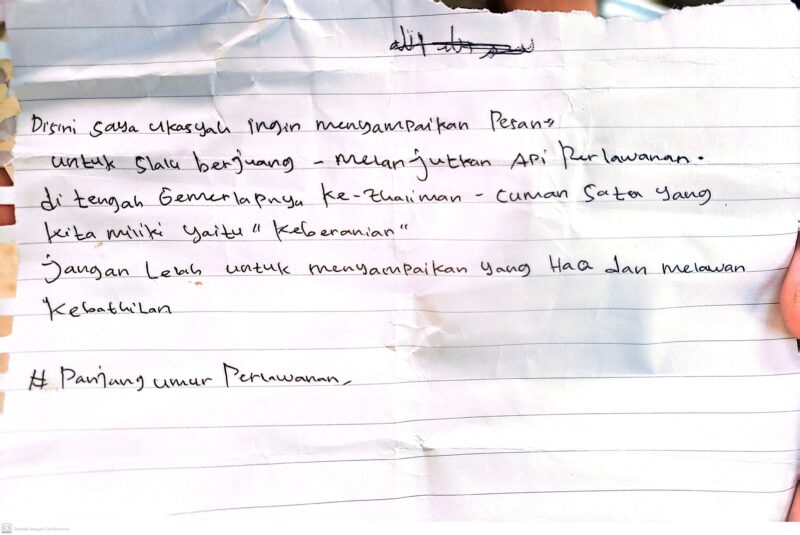 Disini saya ukasyah ingin menyampaikan Pesan→
untuk slalu berjuang - melanjutkan Api Perlawanan.
di tengah Gemerlapnya Ke-Zhaliman - cuman satu yang
kita miliki yaitu "Keberanian"
jangan Lelah untuk menyampaikan yang HaQ dan melawan
Kebathilan
# Panjang umur Perlawanan,
CS Dipindai dengan CamScanner